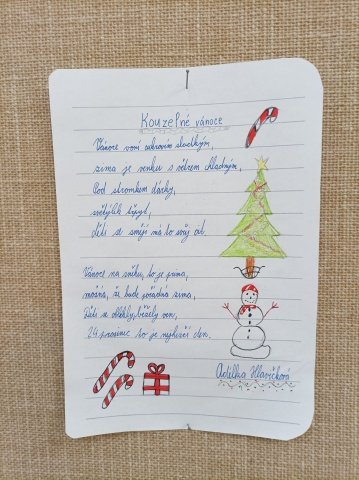 Kouzelné vánoce
Vánoce voní cukrovím sladkým,
zima je venku s větrem chladným,
Pod stromkem dárky,
světýlek třpyt,
děti se smějí má to svůj cit.
Vánoce na sněhu, to je prima,
možná, že bude pořádná zima,
Děti se oblékly, běžely ven,
24 prosinec to je nejhezčí den.
Adélka Hlavičková